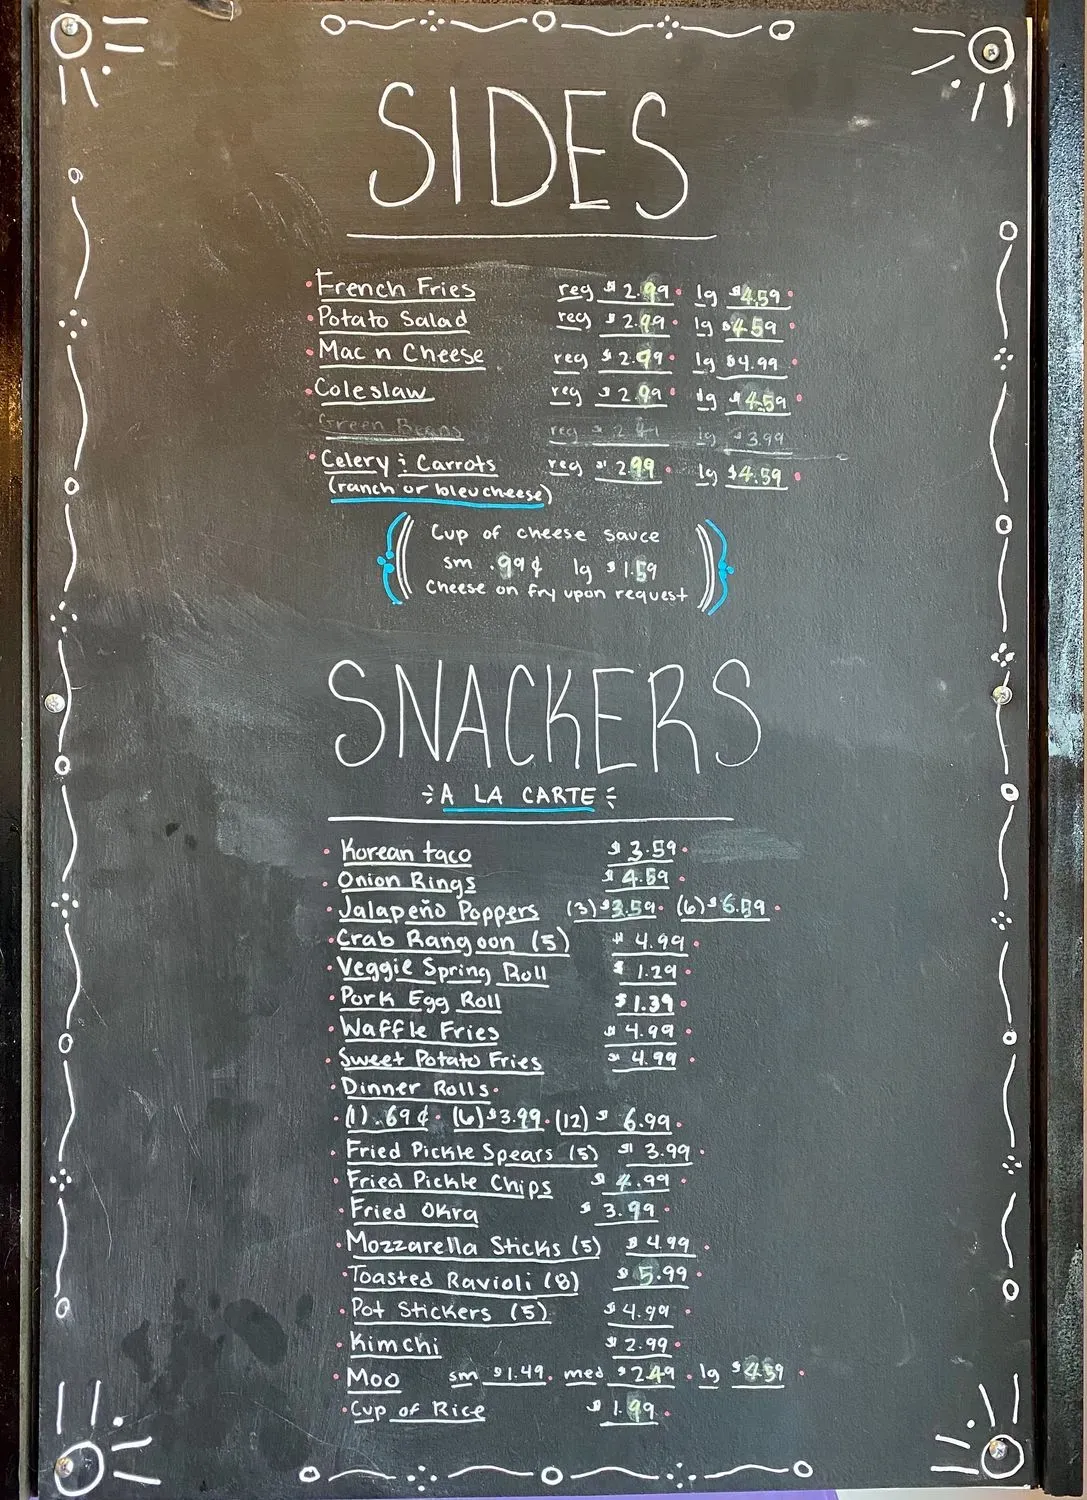 SIDES
French Fries reg $2.99 lg $4.59
Potato Salad reg $2.99 lg $4.59
Mac n Cheese reg $2.99 lg $4.99
Coleslaw reg $2.99 lg $4.59
Green Beans reg $ lg $3.99
Celery & Carrots reg $2.99 lg $4.59
(ranch or bleucheese)
Cup of cheese sauce
sm .99¢ lg $1.59
Cheese on fry upon request
SNACKERS
A LA CARTE
Korean taco $3.59
Onion Rings $4.59
Jalapeño Poppers (3) $3.59 (6) $6.59
Crab Rangoon (5) $4.99
Veggie Spring Roll $1.29
Pork Egg Roll $1.39
Waffle Fries $4.99
Sweet Potato Fries $4.99
Dinner Rolls
(1) .69¢ (6) $3.99 (12) $6.99
Fried Pickle Spears (5) $3.99
Fried Pickle Chips $4.99
Fried Okra $3.99
Mozzarella Sticks (5) $4.99
Toasted Ravioli (8) $5.99
Pot Stickers (5) $4.99
Kimchi $2.99
Moo sm $1.49 med $2.49 lg $4.59
Cup of Rice $1.99